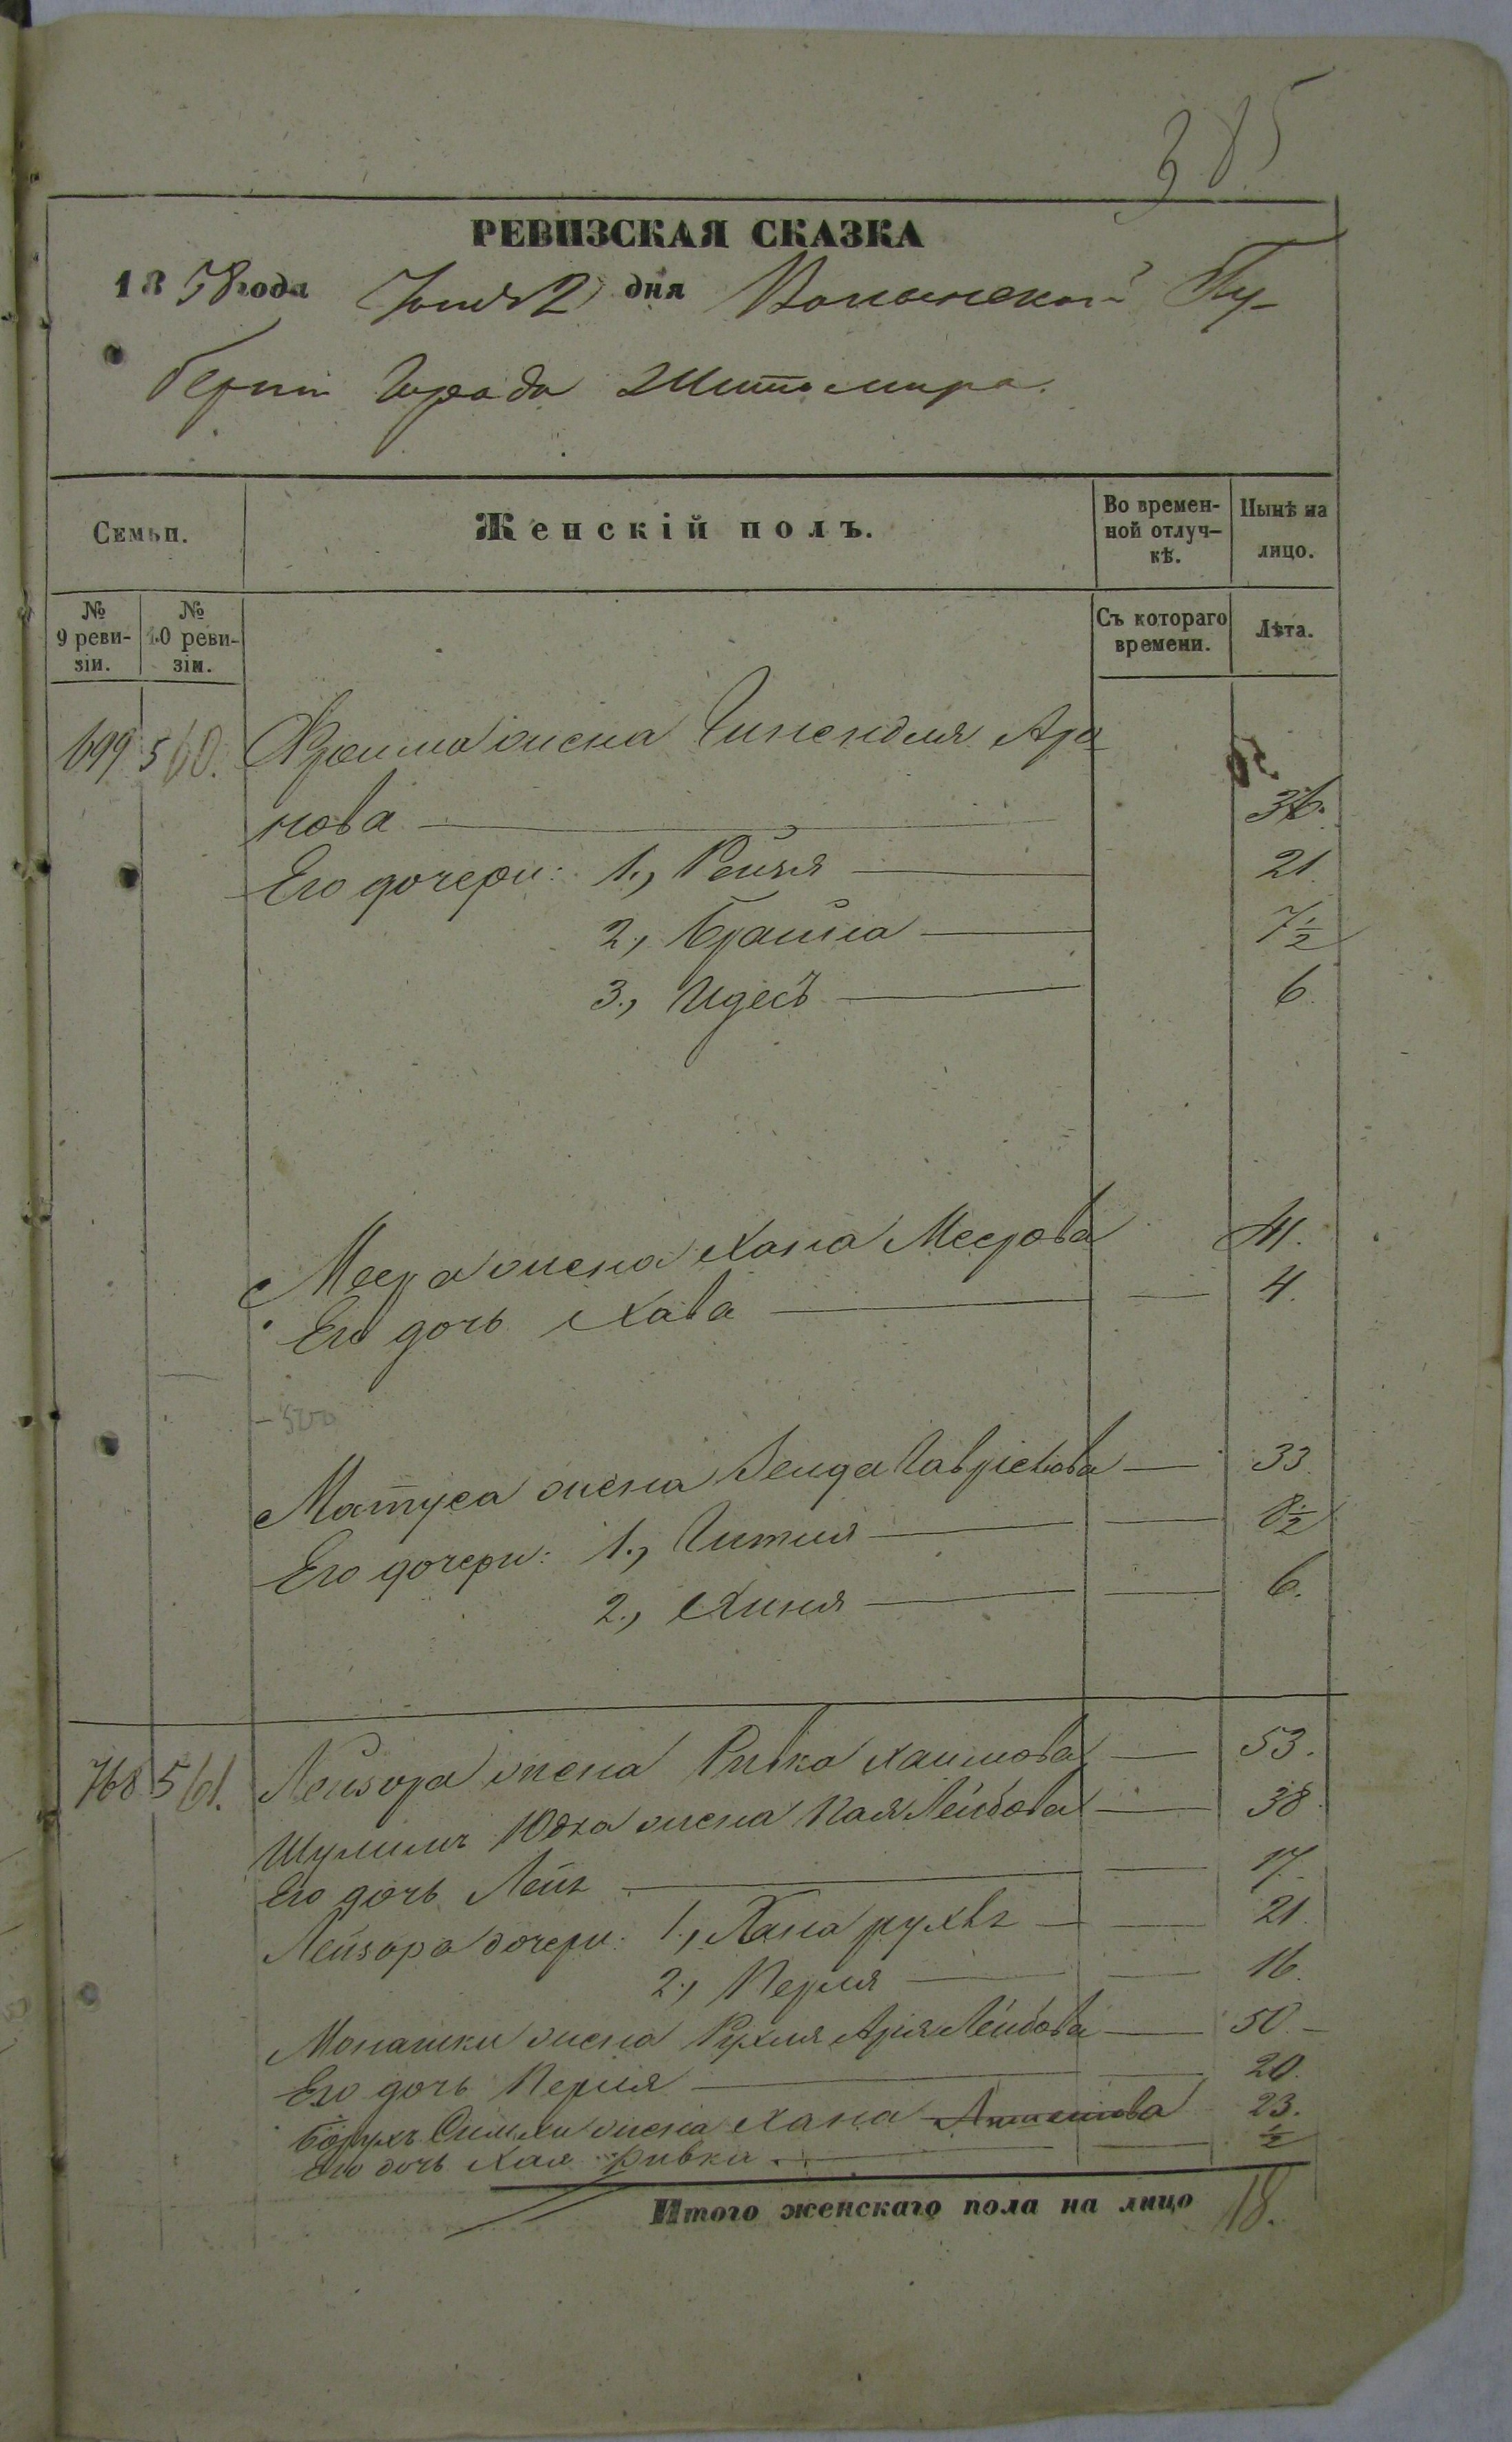 385
РЕВИЗСКАЯ СКАЗКА
1858 года Іюня 2 дня Волынской Гу-
берніи Города Житомира.
Семьи.
Женскій полъ.
Во времен-
ной отлуч-
кѣ.
Нынѣ на
лицо.
№
9 реви-
зіи.
№
10 реви-
зіи.
Съ котораго
времени.
Лѣта.
699 560. Фроима жена Гинендля Аро
нова 36.
Его дочери: 1., Рейзя 21.
2., Брайна 7½
3., Идесъ 6.
Меера жена Хана Меерова 41.
Его дочь Хава 4.
Матуса жена Зенда Гавріелова 33.
Его дочери: 1., Гитля 8½
2., Хиня 6.
768 561. Лейзора жена Ривка Хаимова 53.
Шулимъ Юдка жена Лейбова 38.
Его дочь 17.
Лейзора дочери: 1., Хана 21.
2., Перля 16.
Монашки жена Рухля Арія Лейбова 50.
Его дочь Перля 20.
Борухъ Симхи жена Хана 23.
Его дочь Хая Ривка ½
Итого женскаго пола на лицо 18.